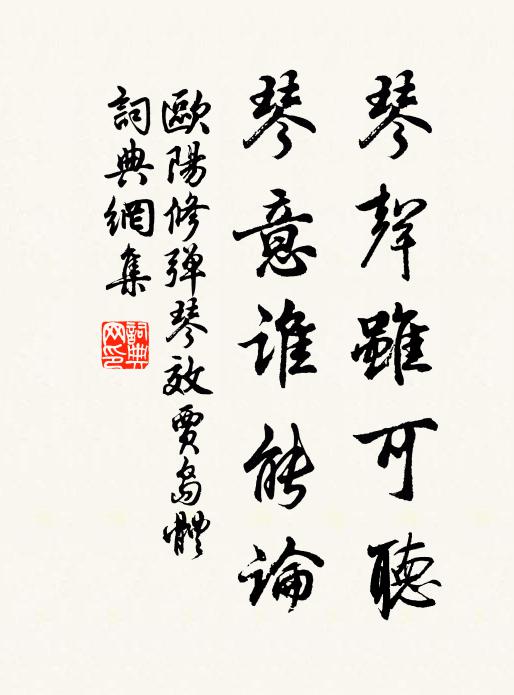 琴聲雖可聽
琴意誰能論
歐陽修彈琴效賈島體
詞典網集
詞典網印